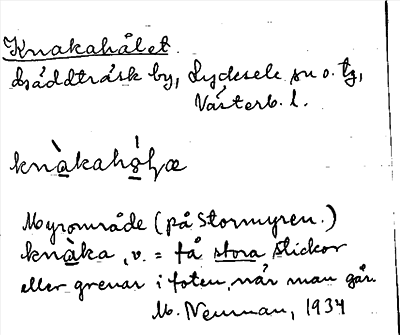 Knakahålet.
Bäddträsk by, Lycksele sn o. tg,
Västerb. l.
knàkahó̱ļæ
Myrområde (på Stormyren.)
knàka, v. = få stora stickor
eller grenar i foten, när man går.
M. Neuman, 1934